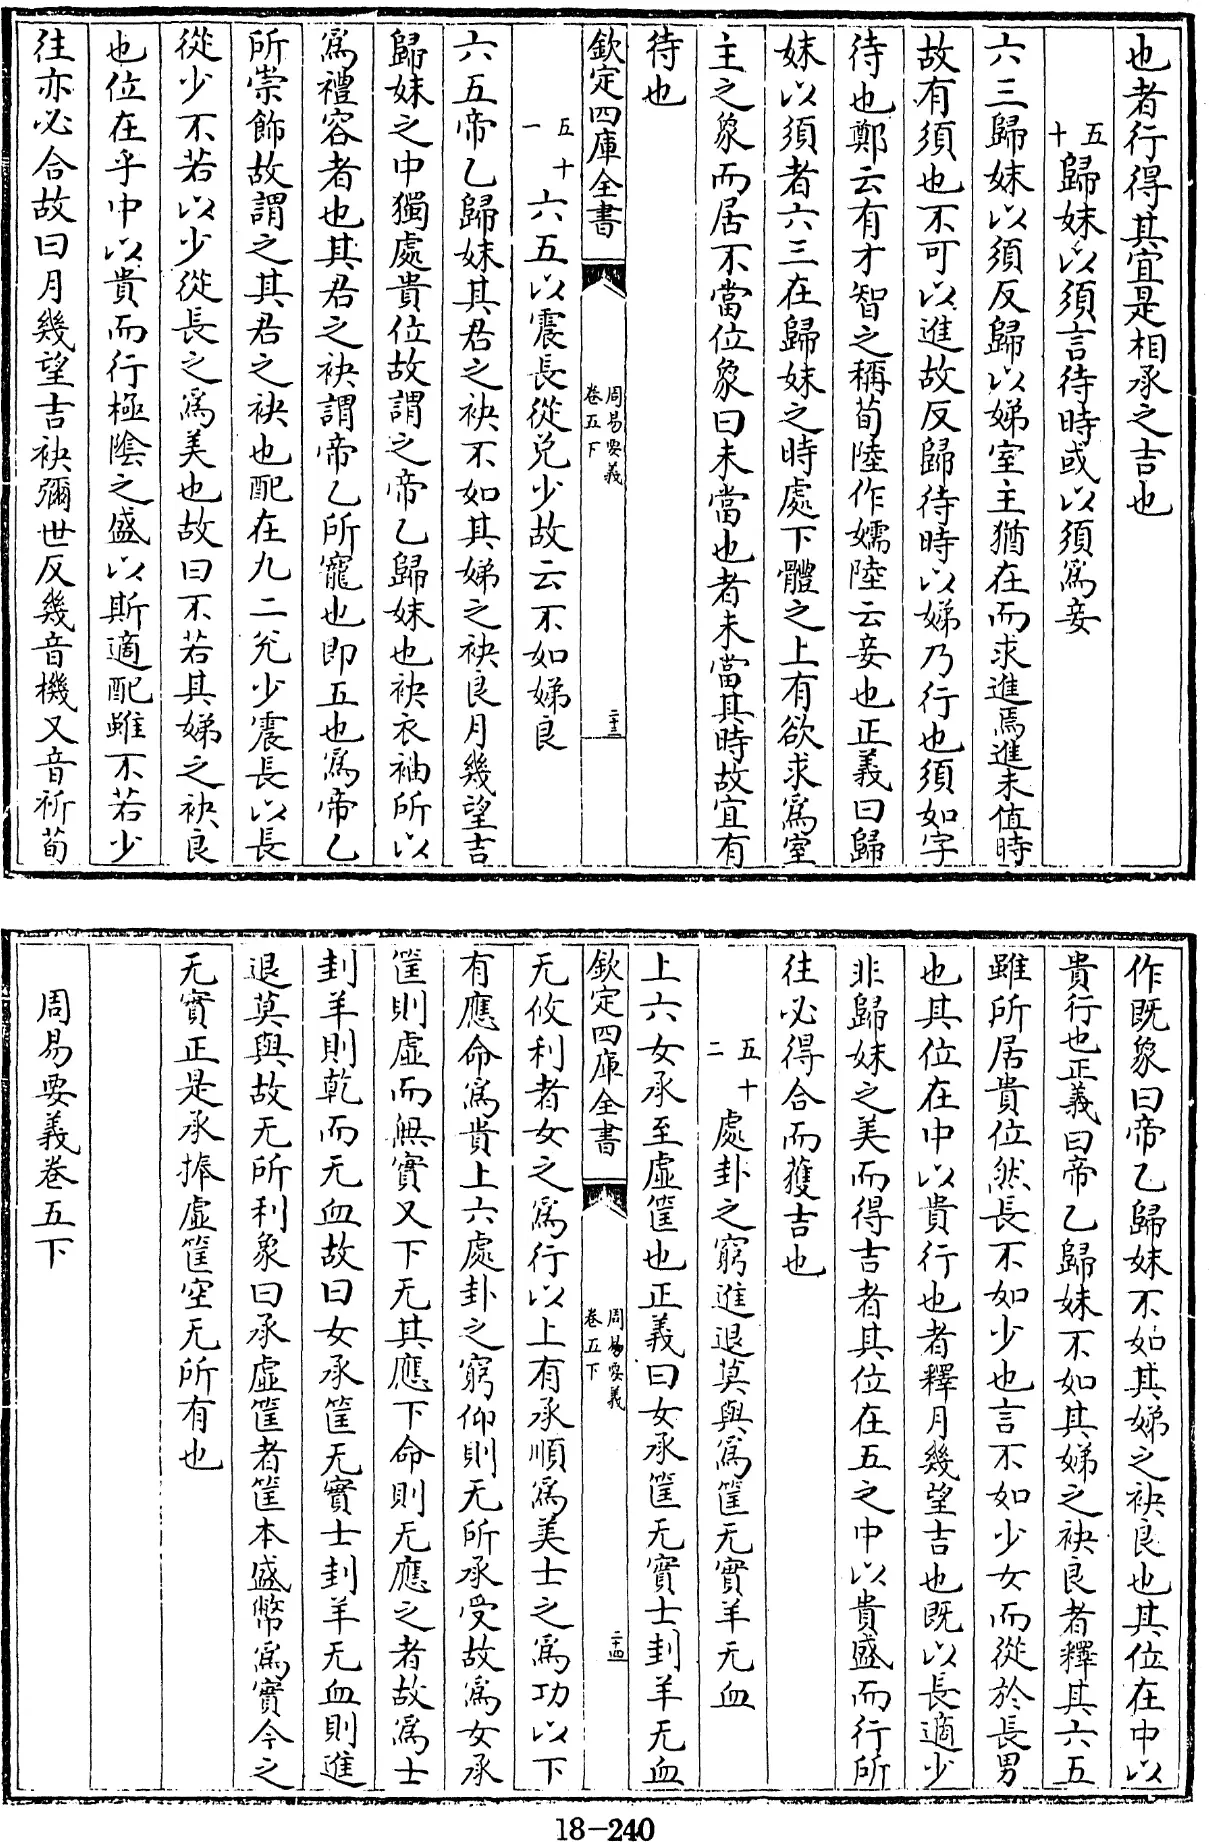 也者行得其宜是相承之吉也
五十 歸妹以須言待時或以須為妾
六三歸妹以須反歸以娣室主猶在而求進焉進未值時
故有須也不可以進故反歸待時以娣乃行也須如字
待也鄭云有才智之稱荀陸作嬬陸云妾也正義曰歸
妹以須者六三在歸妹之時處下體之上有欲求為室
主之象而居不當位象曰未當也者未當其時故宜有
待也
欽定四庫全書 周易要義 卷五下 二十三
五十一 六五以震長從兌少故云不如娣良
六五帝乙歸妹其君之袂不如其娣之袂良月幾望吉
歸妹之中獨處貴位故謂之帝乙歸妹也袂衣袖所以
為禮容者也其君之袂謂帝乙所寵也即五也為帝乙
所崇飾故謂之其君之袂也配在九二兊少震長以長
從少不若以少從長之為美也故曰不若其娣之袂良
也位在乎中以貴而行極陰之盛以斯適配雖不若少
往亦必合故曰月幾望吉袂彌世反幾音機又音祈荀
作既象曰帝乙歸妹不如其娣之袂良也其位在中以
貴行也正義曰帝乙歸妹不如其娣之袂良者釋其六五
雖所居貴位然長不如少也言不如少女而從於長男
也其位在中以貴行也者釋月幾望吉也既以長適少
非歸妹之美而得吉者其位在五之中以貴盛而行所
往必得合而獲吉也
五十二 處卦之窮進退莫與為筐无實羊无血
上六女承至虛筐也正義曰女承筐无實士刲羊无血
欽定四庫全書 周易要義 卷五下 二十四
无攸利者女之為行以上有承順為美士之為功以下
有應命為貴上六處卦之窮仰則无所承受故為女承
筐則虛而無實又下无其應下命則无應之者故為士
刲羊則乾而无血故曰女承筐无實士刲羊无血則進
退莫與故无所利象曰承虛筐者筐本盛幣為實今之
无實正是承捧虛筐空无所有也
周易要義卷五下
18-240